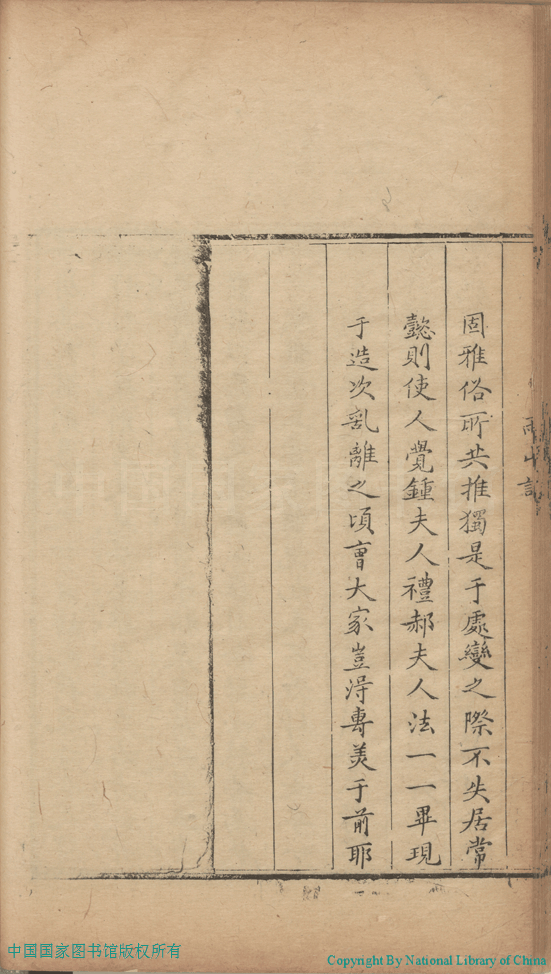 固雅俗所共推獨是于處變之際不失居常
懿則使人覺鍾夫人禮郝夫人法一一畢現
于造次亂離之頃曹大家豈得專美于前耶
中国国家图书馆版权所有
Copyright By National Library of China